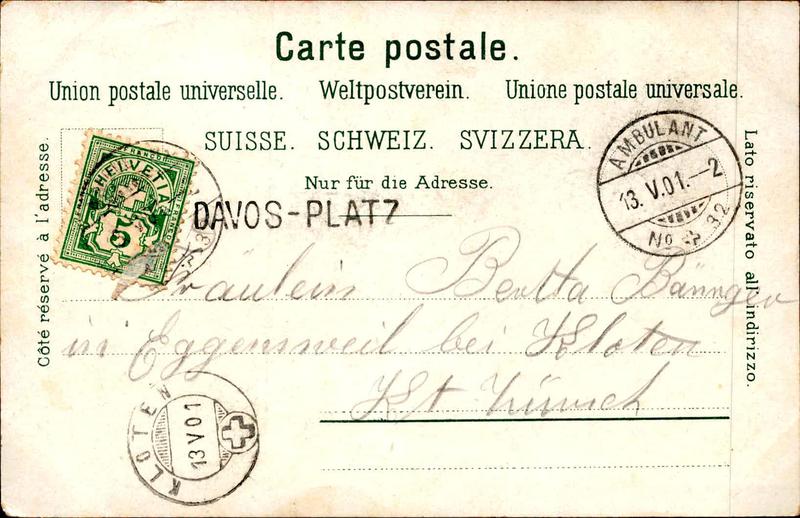 Carte postale.
Union postale universelle. Weltpostverein. Unione postale universale.
SUISSE. SCHWEIZ. SVIZZERA.
Nur für die Adresse.
Côté réservé à l'adresse.
Lato riservato all'indirizzo.
FRANCO
HELVETIA
5
DAVOS-PLATZ
AMBULANT
13.V.01.-2
No 32
Fräulein Bertha
in Eggensweil bei Kloten
Kt Zürich
KLOTEN
13 V 01